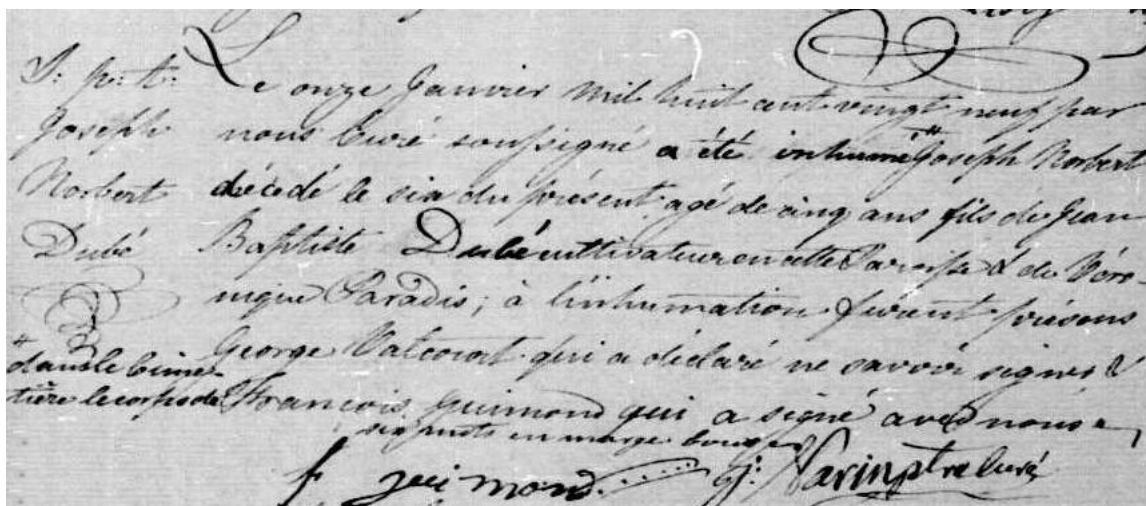 S: p: t:
Joseph
Norbert
Dubé
Le onze Janvier mil huit cent vingt neuf par
nous Curé soussigné a été inhumé # Joseph Norbert
décédé le six du présent agé de cinq ans fils de Jean
Baptiste Dubé cultivateur en cette Paroisse & de Véro
nique Paradis; à l'inhumation furent présens
George Valcourt qui a déclaré ne savoir signer &
François Guimond qui a signé avec nous
# dans le cime-
tière le corps de
six mots en marge bons
f guimond
J: Varin ptre Curé